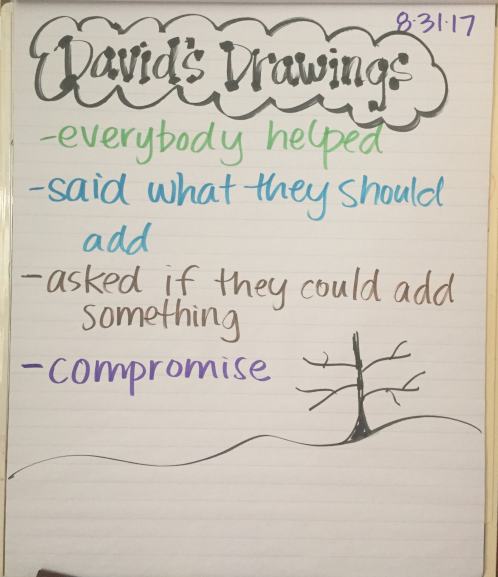 8·31·17
David's Drawings
-everybody helped
-said what they should
add
-asked if they could add
something
-compromise